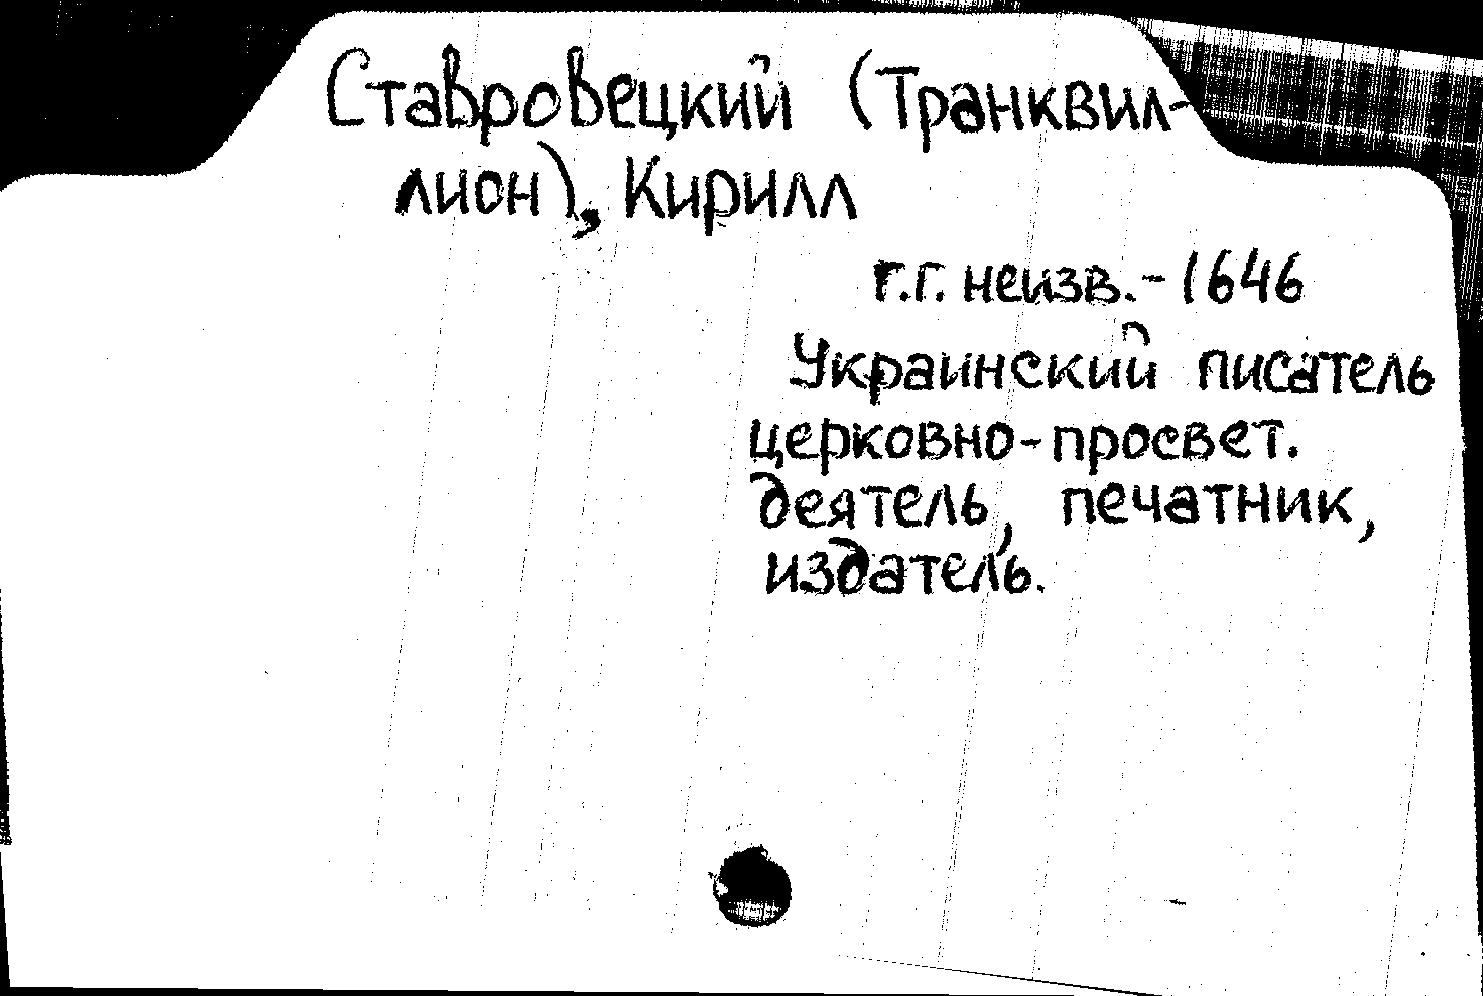 Ставровецкий (Транквил-
лион), Кирилл
г.г. неизв.-1646
Украинский писатель
церковно-просвет.
деятель, печатник,
издатель.